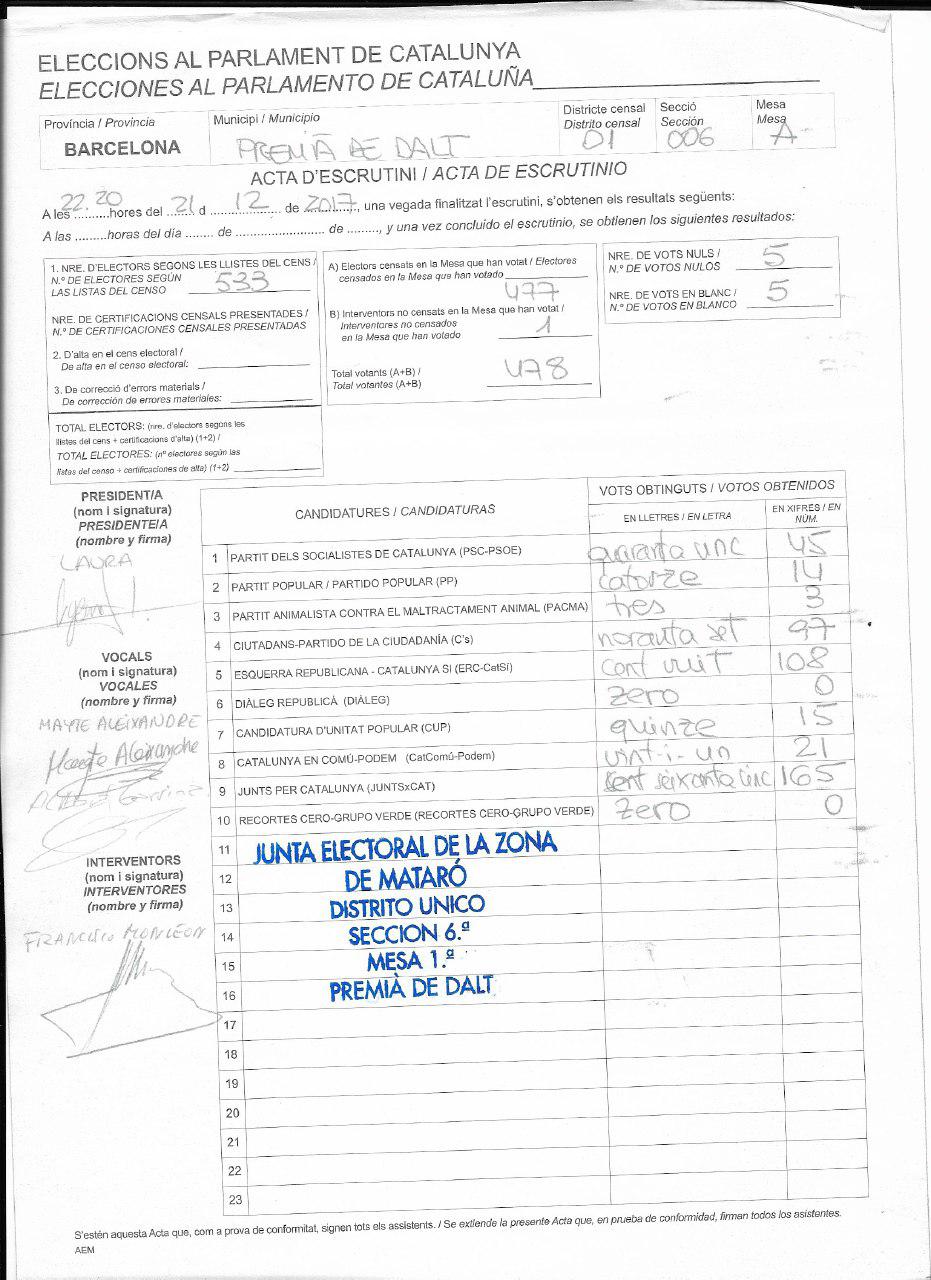 ELECCIONS AL PARLAMENT DE CATALUNYA
ELECCIONES AL PARLAMENTO DE CATALUÑA
Província / Provincia
BARCELONA
Municipi / Municipio
PREMIÀ DE DALT
Districte censal
Distrito censal
01
Secció
Sección
006
Mesa
Mesa
A
ACTA D'ESCRUTINI / ACTA DE ESCRUTINIO
A les 22.20 hores del 21 d 12 de 2017, una vegada finalitzat l'escrutini, s'obtenen els resultats següents:
A las .........horas del día ........ de ......................... de ........, y una vez concluido el escrutinio, se obtienen los siguientes resultados:
1. NRE. D'ELECTORS SEGONS LES LLISTES DEL CENS /
N.º DE ELECTORES SEGÚN
LAS LISTAS DEL CENSO 533
NRE. DE CERTIFICACIONS CENSALS PRESENTADES /
N.º DE CERTIFICACIONES CENSALES PRESENTADAS
2. D'alta en el cens electoral /
De alta en el censo electoral:
3. De correcció d'errors materials /
De corrección de errores materiales:
TOTAL ELECTORS: (nre. d'electors segons les
llistes del cens + certificacions d'alta) (1+2) /
TOTAL ELECTORES: (nº electores según las
listas del censo + certificaciones de alta) (1+2)
A) Electors censats en la Mesa que han votat / Electores
censados en la Mesa que han votado
477
B) Interventors no censats en la Mesa que han votat /
Interventores no censados
en la Mesa que han votado 1
Total votants (A+B) /
Total votantes (A+B) 478
NRE. DE VOTS NULS /
N.º DE VOTOS NULOS 5
NRE. DE VOTS EN BLANC /
N.º DE VOTOS EN BLANCO 5
PRESIDENT/A
(nom i signatura)
PRESIDENTE/A
(nombre y firma)
LAURA
VOCALS
(nom i signatura)
VOCALES
(nombre y firma)
MAYTE ALEIXANDRE
Mayte Aleixandre
INTERVENTORS
(nom i signatura)
INTERVENTORES
(nombre y firma)
FRANCISCO MONLEON
CANDIDATURES / CANDIDATURAS
VOTS OBTINGUTS / VOTOS OBTENIDOS
EN LLETRES / EN LETRA
EN XIFRES / EN NÚM.
1 PARTIT DELS SOCIALISTES DE CATALUNYA (PSC-PSOE) quaranta cinc 45
2 PARTIT POPULAR / PARTIDO POPULAR (PP) catorze 14
3 PARTIT ANIMALISTA CONTRA EL MALTRACTAMENT ANIMAL (PACMA) tres 3
4 CIUTADANS-PARTIDO DE LA CIUDADANÍA (C's) noranta set 97
5 ESQUERRA REPUBLICANA - CATALUNYA SI (ERC-CatSí) cent vuit 108
6 DIÀLEG REPUBLICÀ (DIÀLEG) zero 0
7 CANDIDATURA D'UNITAT POPULAR (CUP) quinze 15
8 CATALUNYA EN COMÚ-PODEM (CatComú-Podem) vint-i-un 21
9 JUNTS PER CATALUNYA (JUNTSxCAT) sent seixanta cinc 165
10 RECORTES CERO-GRUPO VERDE (RECORTES CERO-GRUPO VERDE) zero 0
11 JUNTA ELECTORAL DE LA ZONA
12 DE MATARÓ
13 DISTRITO UNICO
14 SECCION 6.ª
15 MESA 1.ª
16 PREMIÀ DE DALT
17
18
19
20
21
22
23
S'estén aquesta Acta que, com a prova de conformitat, signen tots els assistents. / Se extiende la presente Acta que, en prueba de conformidad, firman todos los asistentes.
AEM